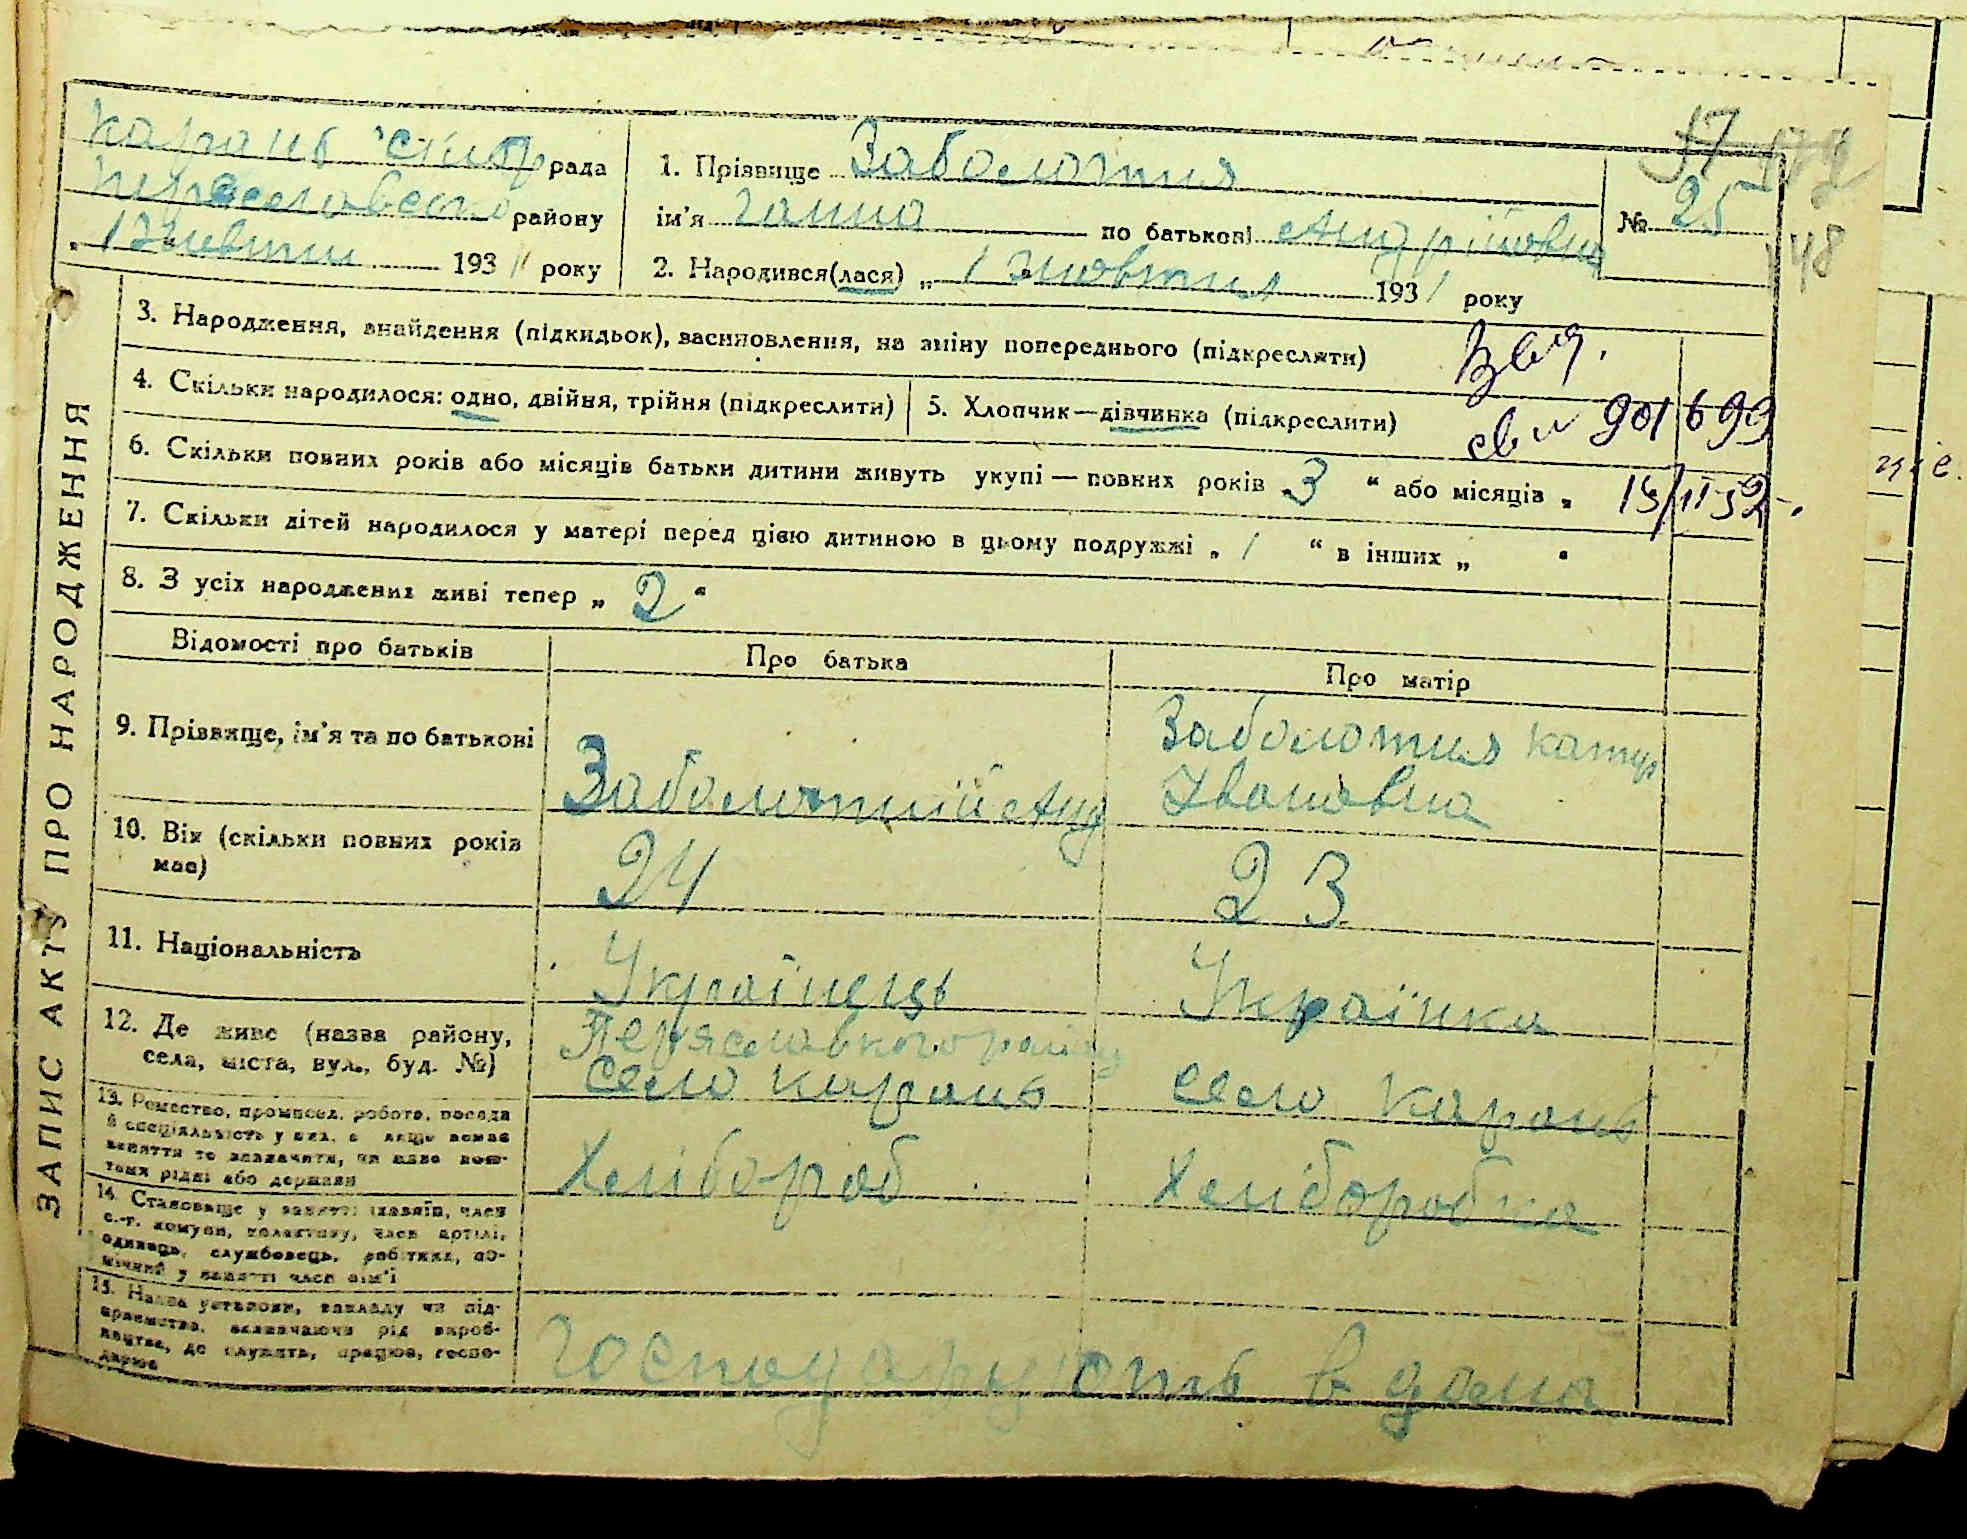 Карань
рада
району
1 жовтня 1931 року
1. Прізвище Заболотня
ім'я Ганна по батькові Андріївна
2. Народився(лася) „ 1 жовтня 1931 року
№ 25
148
3. Народження, знайдення (підкидьок), засиновлення, на зміну попереднього (підкреслити)
4. Скільки народилося: одно, двійня, трійня (підкреслити)
5. Хлопчик—дівчинка (підкреслити)
901699
6. Скільки повних років або місяців батьки дитини живуть укупі — повних років 3 “ або місяців „
7. Скільки дітей народилося у матері перед цією дитиною в цьому подружжі „ 1 “ в інших „
8. З усіх народжених живі тепер „ 2 “
Відомості про батьків
Про батька
Про матір
9. Прізвище, ім'я та по батькові
Заболотний Анд
Заболотня Катер
Івановна
10. Вік (скільки повних років має)
24
23
11. Національність
Українець
Українка
12. Де живе (назва району,
села, міста, вул., буд. №)
село Карань
село Карань
13. Ремество, промисел, робота, посада
й спеціяльність у них, а якщо немає
заняття то зазначити, чи живе кош-
том рідні або держави
Хлібороб
Хлібробка
14. Становище у занятті (хазяїн, член
с.-г. комуни, колективу, член артілі,
одинець, службовець, робітник, по-
мічний у занятті член сім'ї
15. Назва установи, закладу чи під-
приємства, зазначаючи рід вироб-
ництва, де служить, працює, госпо-
дарює
Господарують в дома
ЗАПИС АКТУ ПРО НАРОДЖЕННЯ